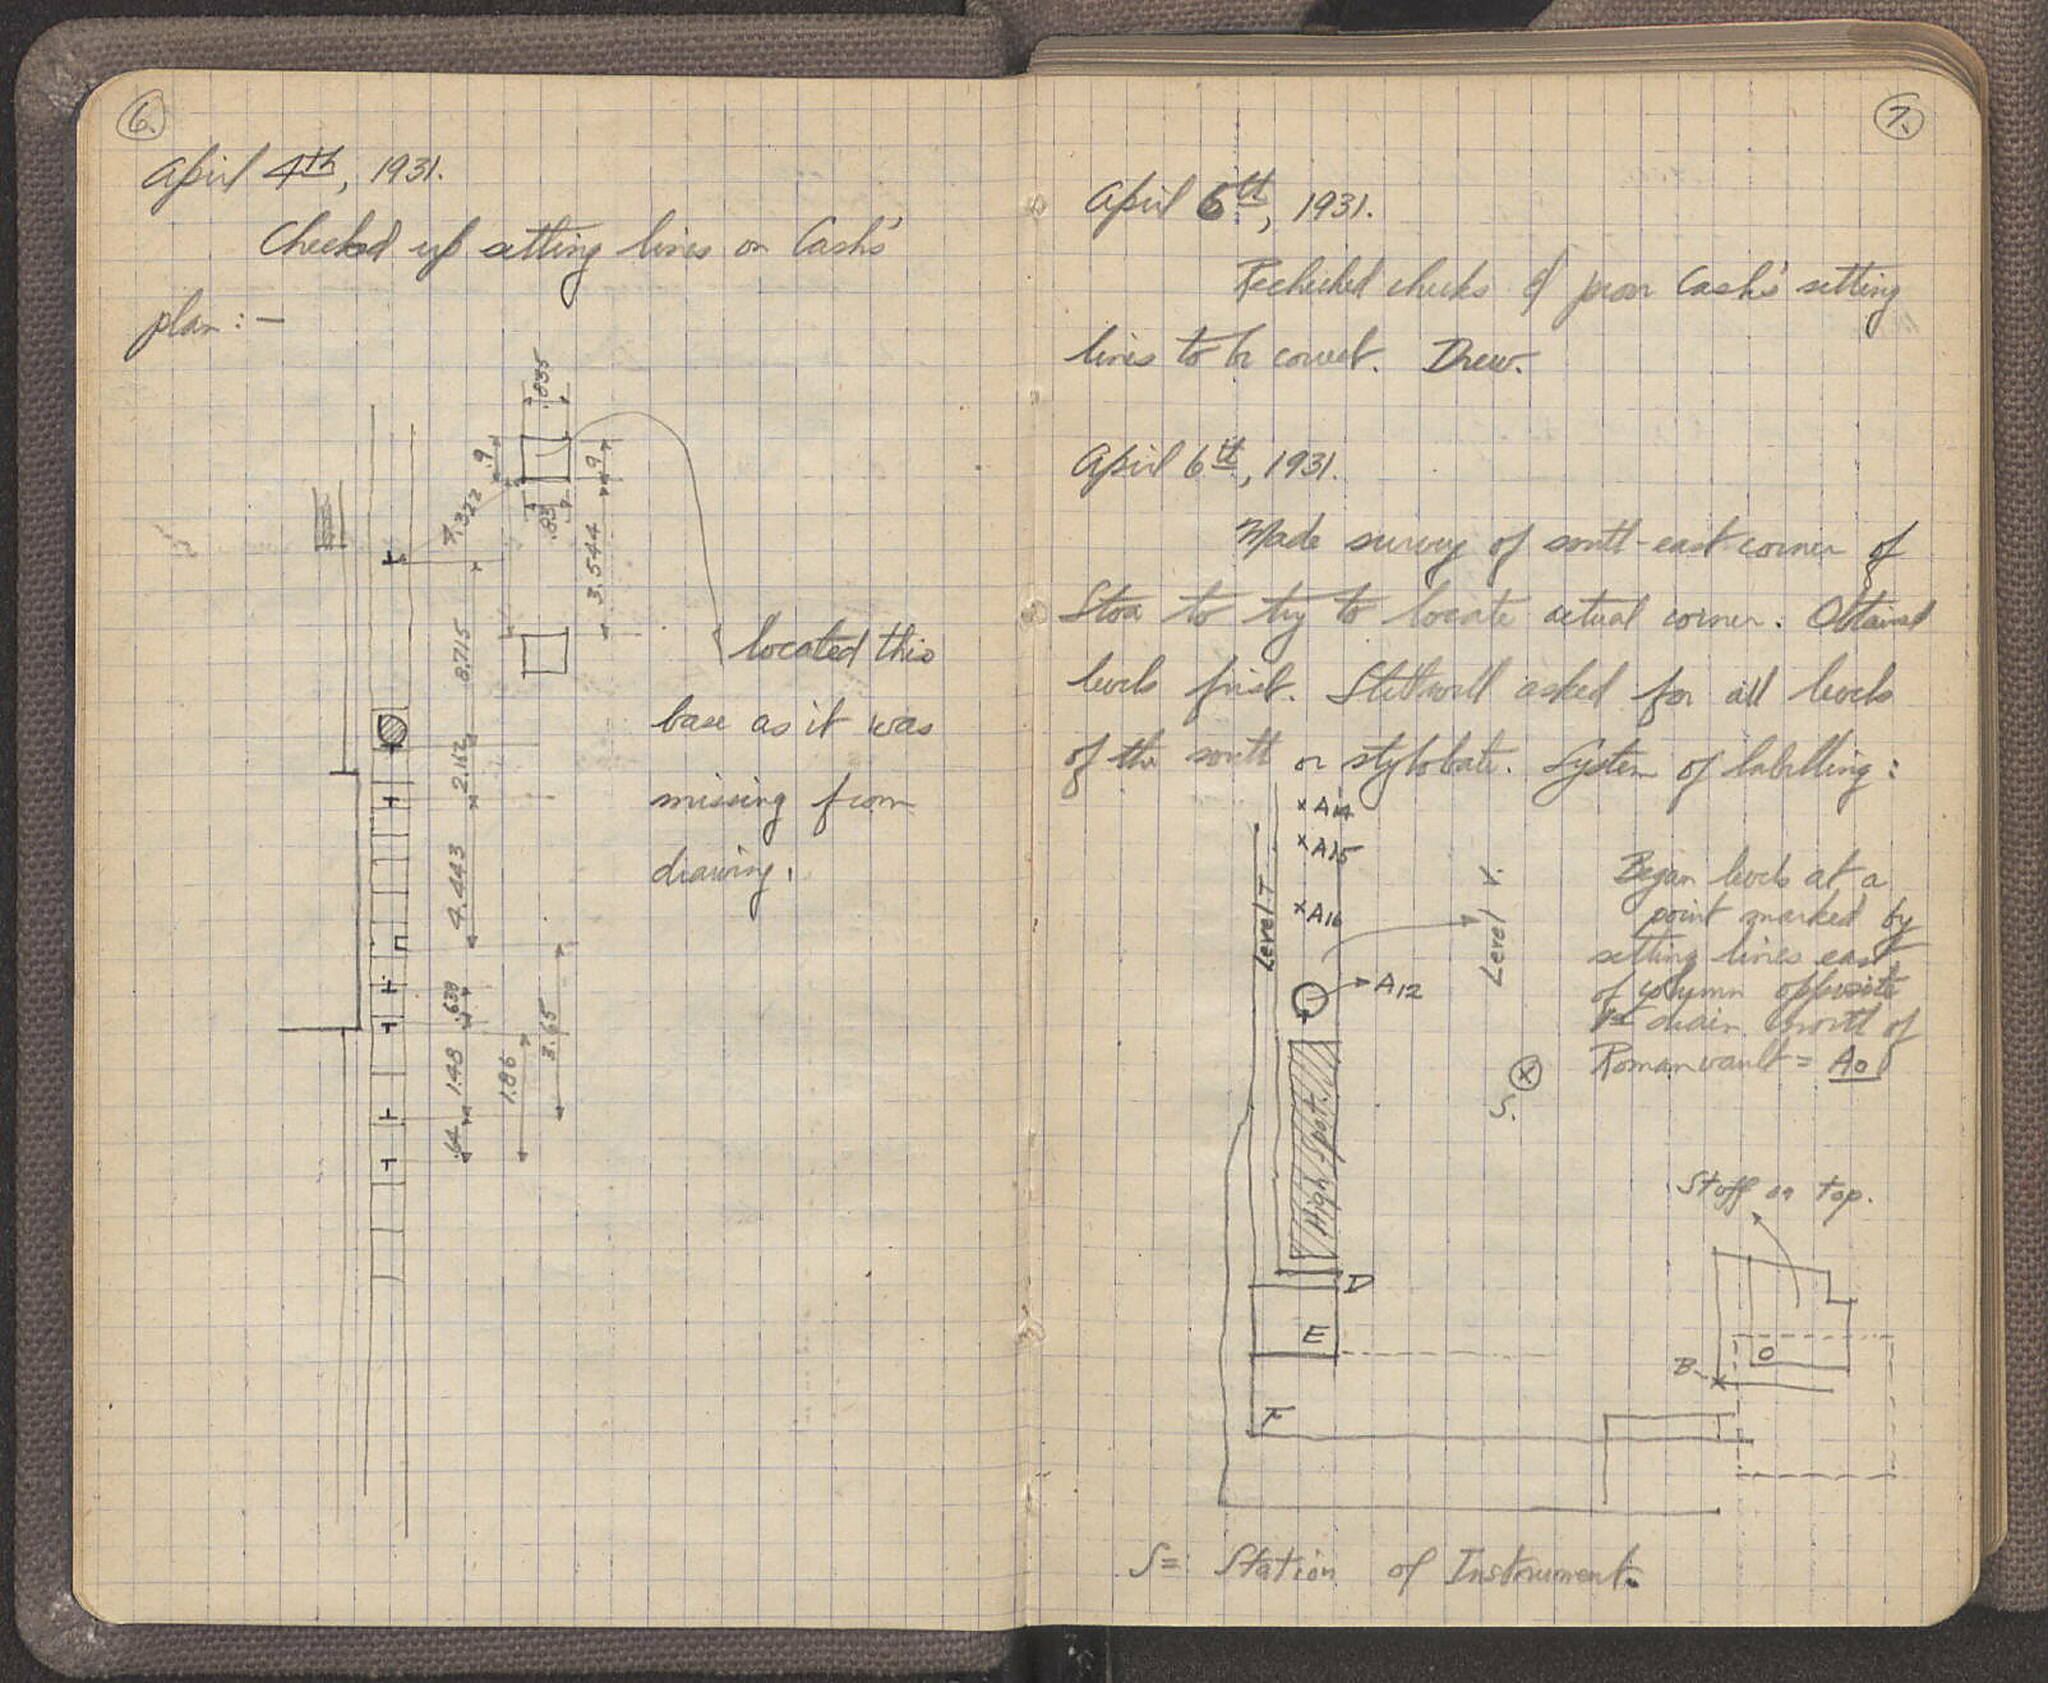 6.
April 4th, 1931.
Checked up setting lines on Cash's
plan:—
.835
.9
.9
7.322
.83
3.544
8.715
located this
base as it was
missing from
drawing.
2.162
4.443
.639
3.65
1.48
1.86
.64
7.
April 6th, 1931.
Rechecked checks & Cash's setting
lines to be correct. Drew.
April 6th, 1931.
Made survey of south-east corner of
Stoa to try to locate actual corner. Obtained
levels first. Stillwell asked for all levels
of the south or stylobate. System of labelling:
x A14
x A15
x A16
Level T
Level V.
A12
Began levels at a
point marked by
setting lines east
of column opposite
1st drain north of
Roman vault = A0
S.
High Spot.
Stuff on top.
D
E
O
B
F
S = Station of Instrument.